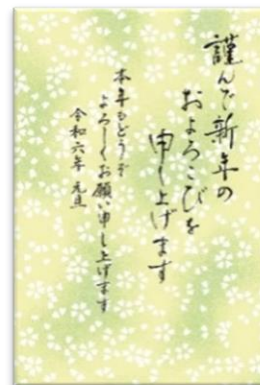 謹んで新年の
およろこびを
申し上げます
本年もどうぞ
よろしくお願い申し上げます
令和六年 元旦